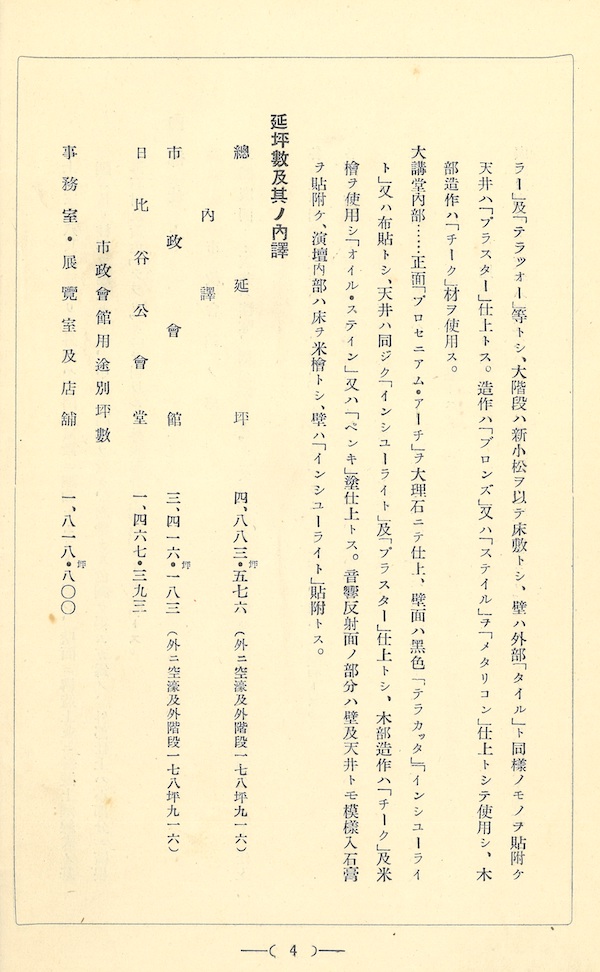 ラー」及「テラッオー」等トシ、大階段ハ新小松ヲ以テ床敷トシ、壁ハ外部「タイル」ト同樣ノモノヲ貼附ケ
天井ハ「プラスター」仕上トス。造作ハ「ブロンズ」又ハ「ステイル」ヲ「メタリコン」仕上トシテ使用シ、木
部造作ハ「チーク」材ヲ使用ス。
大講堂內部……正面「プロセニアム・アーチ」ヲ大理石ニテ仕上、壁面ハ黑色「テラカッタ」「インシユーライ
ト」又ハ布貼トシ、天井ハ同ジク「インシユーライト」及「プラスター」仕上トシ、木部造作ハ「チーク」及米
檜ヲ使用シ「オイル・ステイン」又ハ「ペンキ」塗仕上トス。音響反射面ノ部分ハ壁及天井トモ模樣入石膏
ヲ貼附ケ、演壇內部ハ床ヲ米檜トシ、壁ハ「インシユーライト」貼附トス。
延坪數及其ノ內譯
總延坪 四、八八三・五七六坪（外ニ空濠及外階段一七八坪九一六）
內譯
市政會館 三、四一六・一八三（外ニ空濠及外階段一七八坪九一六）
日比谷公會堂 一、四六七・三九三
市政會館用途別坪數
事務室・展覽室及店舖 一、八一八・八〇〇坪
—( 4 )—